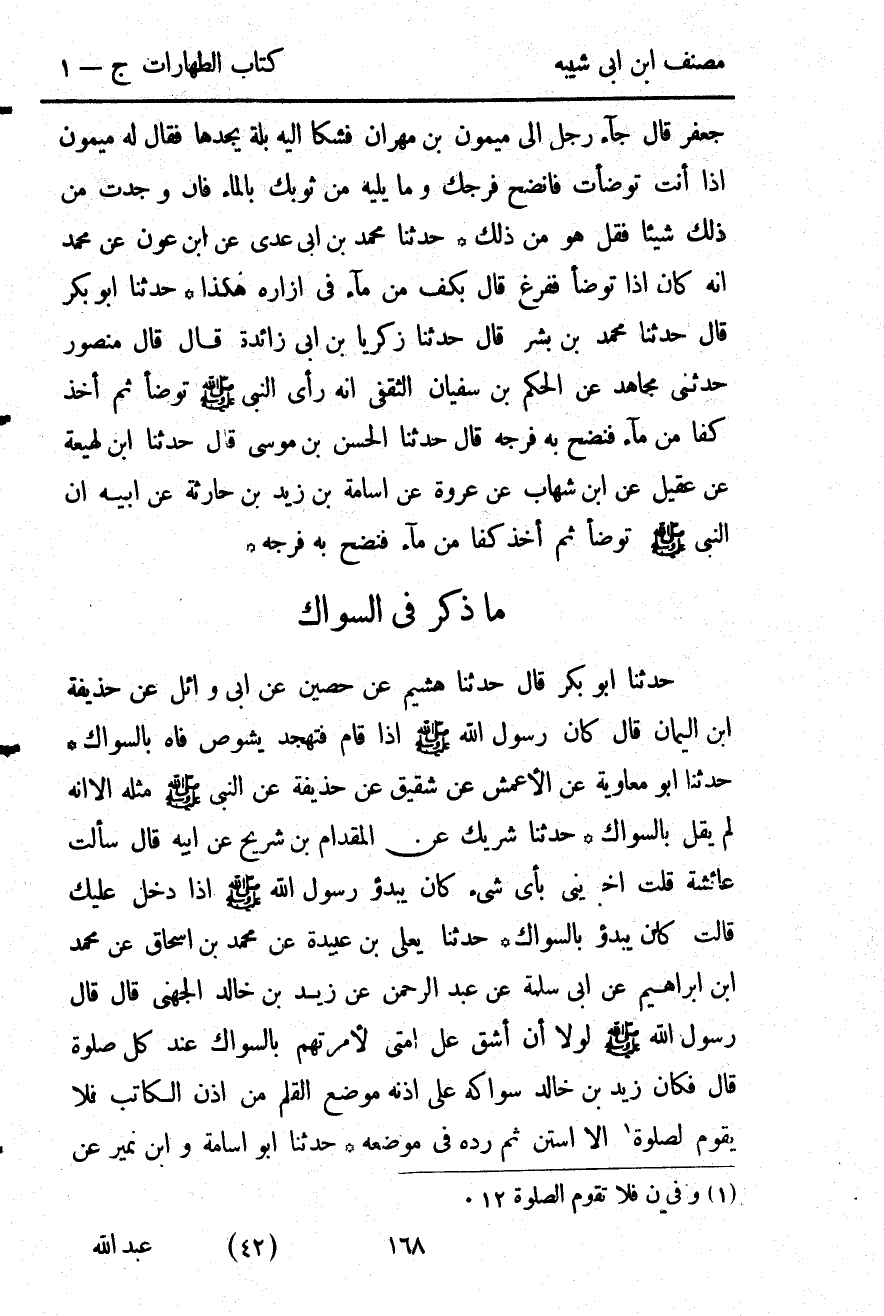 مصنف ابن ابى شيبه كتاب الطهارات ج – ١
جعفر قال جآء رجل الى ميمون بن مهران فشكا اليه بلة يجدها فقال له ميمون
اذا أنت توضأت فانضح فرجك و ما يليه من ثوبك بالماء فان و جدت من
ذلك شيئا فقل هو من ذلك * حدثنا محمد بن ابى عدى عن ابن عون عن محمد
انه كان اذا توضأ ففرغ قال بكف من مآء فى ازاره هكذا * حدثنا ابو بكر
قال حدثنا محمد بن بشر قال حدثنا زكريا بن ابى زائدة قال قال منصور
حدثنى مجاهد عن الحكم بن سفيان الثقفى انه رأى النبى ﷺ توضأ ثم أخذ
كفا من مآء فنضح به فرجه قال حدثنا الحسن بن موسى قال حدثنا ابن لهيعة
عن عقيل عن ابن شهاب عن عروة عن اسامة بن زيد بن حارثة عن ابيه ان
النبى ﷺ توضأ ثم أخذ كفا من مآء فنضح به فرجه *
ما ذكر فى السواك
حدثنا ابو بكر قال حدثنا هشيم عن حصين عن ابى و ائل عن حذيفة
ابن اليمان قال كان رسول الله ﷺ اذا قام فتهجد يشوص فاه بالسواك *
حدثنا ابو معاوية عن الأعمش عن شقيق عن حذيفة عن النبى ﷺ مثله الا انه
لم يقل بالسواك * حدثنا شريك عن المقدام بن شريح عن ابيه قال سألت
عائشة قلت اخبرينى بأى شىء كان يبدؤ رسول الله ﷺ اذا دخل عليك
قالت كان يبدؤ بالسواك * حدثنا يعلى بن عبيدة عن محمد بن اسحاق عن محمد
ابن ابراهيم عن ابى سلمة عن عبد الرحمن عن زيد بن خالد الجهنى قال قال
رسول الله ﷺ لولا أن أشق عل امتى لأمرتهم بالسواك عند كل صلوة
قال فكان زيد بن خالد سواكه على اذنه موضع القلم من اذن الكاتب فلا
يقوم لصلوة١ الا استن ثم رده فى موضعه * حدثنا ابو اسامة و ابن نمير عن
(١) و فى ن فلا تقوم الصلوة ١٢ ٠
١٦٨ (٤٢) عبد الله